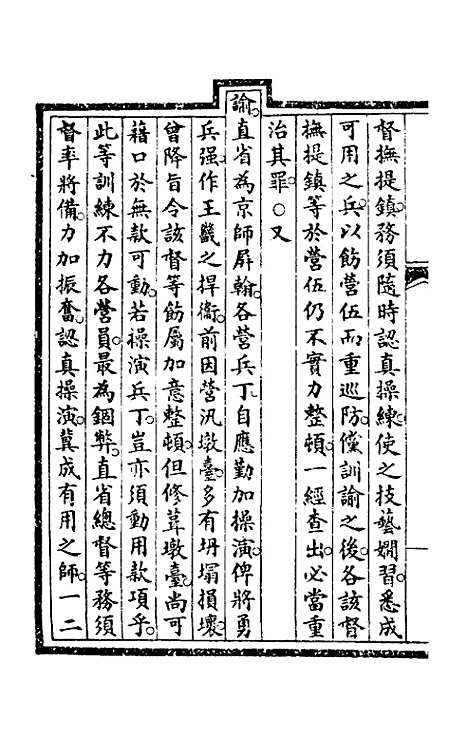 督撫提鎮。務須隨時認真操練。使之技藝嫺習。悉成
可用之兵。以飭營伍而重巡防。儻訓諭之後。各該督
撫提鎮等於營伍仍不實力整頓。一經查出。必當重
治其罪。○又
諭。直省為京師屏翰。各營兵丁自應勤加操演。俾將勇
兵强。作王畿之捍衞。前因營汛墩臺。多有坍塌損壞。
曾降旨令該督等飭屬加意整頓。但修葺墩臺。尚可
藉口於無款可動。若操演兵丁。豈亦須動用款項乎。
此等訓練不力各營員。最為錮弊。直省總督等務須
督率將備。力加振奮。認真操演。冀成有用之師。一二